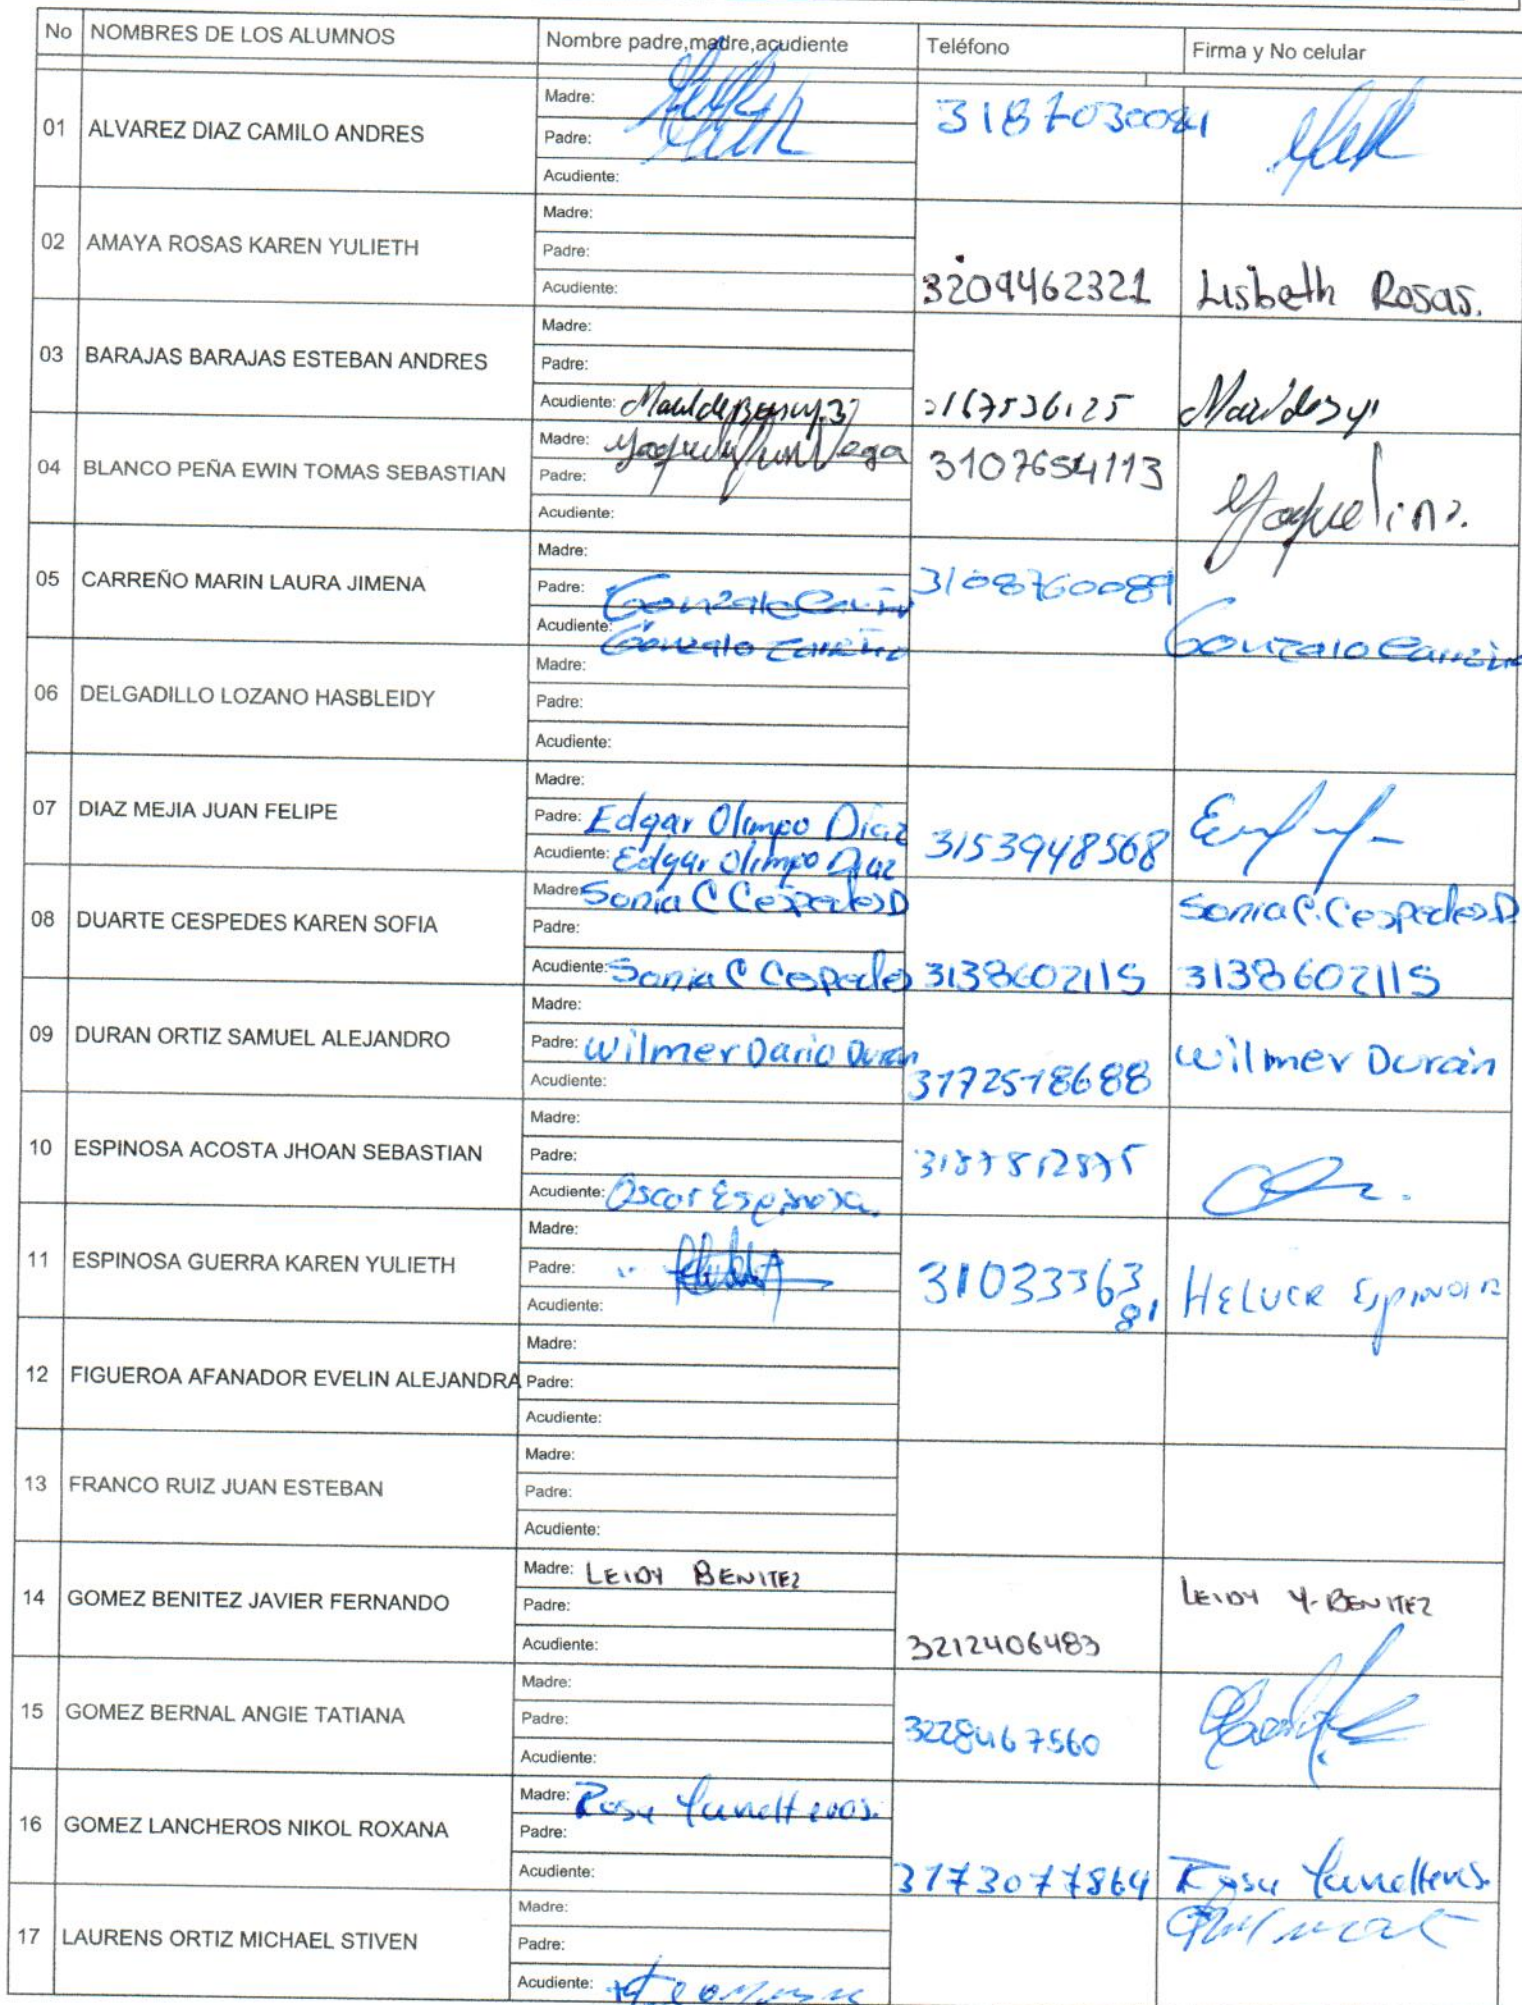 No NOMBRES DE LOS ALUMNOS Nombre padre,madre,acudiente Teléfono Firma y No celular
01 ALVAREZ DIAZ CAMILO ANDRES
Madre:
Padre:
Acudiente:
02 AMAYA ROSAS KAREN YULIETH
Madre:
Padre:
Acudiente:
3209462321 Lisbeth Rosas.
03 BARAJAS BARAJAS ESTEBAN ANDRES
Madre:
Padre:
Acudiente:
04 BLANCO PEÑA EWIN TOMAS SEBASTIAN
Madre:
3107654113
Padre:
Acudiente:
05 CARREÑO MARIN LAURA JIMENA
Madre:
Padre: Gonzalo Carreño
3108760089
Acudiente: Gonzalo Carreño
Gonzalo Carreño
06 DELGADILLO LOZANO HASBLEIDY
Madre:
Padre:
Acudiente:
07 DIAZ MEJIA JUAN FELIPE
Madre:
Padre: Edgar Olimpo Diaz
Acudiente: Edgar Olimpo Diaz
3153948568
08 DUARTE CESPEDES KAREN SOFIA
Madre: Sonia C Cespedes D
Sonia C. Cespedes D
Padre:
Acudiente: Sonia C Cespedes 3138602115 3138602115
09 DURAN ORTIZ SAMUEL ALEJANDRO
Madre:
Padre: Wilmer Dario Duran
Wilmer Durán
Acudiente:
3172518688
10 ESPINOSA ACOSTA JHOAN SEBASTIAN
Madre:
Padre:
Acudiente: Oscar Espinosa.
11 ESPINOSA GUERRA KAREN YULIETH
Madre:
Padre:
3103336381
Acudiente:
12 FIGUEROA AFANADOR EVELIN ALEJANDRA
Madre:
Padre:
Acudiente:
13 FRANCO RUIZ JUAN ESTEBAN
Madre:
Padre:
Acudiente:
14 GOMEZ BENITEZ JAVIER FERNANDO
Madre: LEIDY BENITEZ
LEIDY Y. BENITEZ
Padre:
Acudiente:
3212406483
15 GOMEZ BERNAL ANGIE TATIANA
Madre:
Padre:
3228467560
Acudiente:
16 GOMEZ LANCHEROS NIKOL ROXANA
Madre: Rosa
Padre:
Acudiente:
3173077864 Rosa
17 LAURENS ORTIZ MICHAEL STIVEN
Madre:
Padre:
Acudiente: